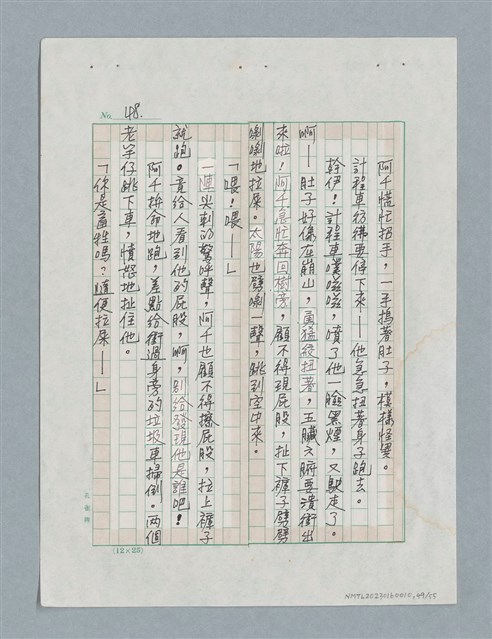 No. 48.
阿千慌忙招手，一手摀著肚子，模樣怪異。
計程車彷彿要停下來——他急急扭著身子跑去。
幹伊！計程車噗嗞嗞，噴了他一臉黑煙，又駛走了。
啊——肚子好像在崩山，勇猛絞扭著，五臟六腑要潰衝出
來啦！阿千急忙奔回樹旁，顧不得現屁股，扯下褲子劈劈
唰唰地拉屎。太陽也劈唰一聲，跳到空中來。
「喂！喂——」
一陣尖刺的驚呼聲，阿千也顧不得擦屁股，拉上褲子
就跑。竟給人看到他的屁股，啊，別給發現他是誰吧！
阿千拚命地跑，差點給衝過身旁的垃圾車掃倒。兩個
老芋仔跳下車，憤怒地扯住他。
「你是畜牲嗎？隨便拉屎——」
(12×25)
NMTL20230160010,49/55